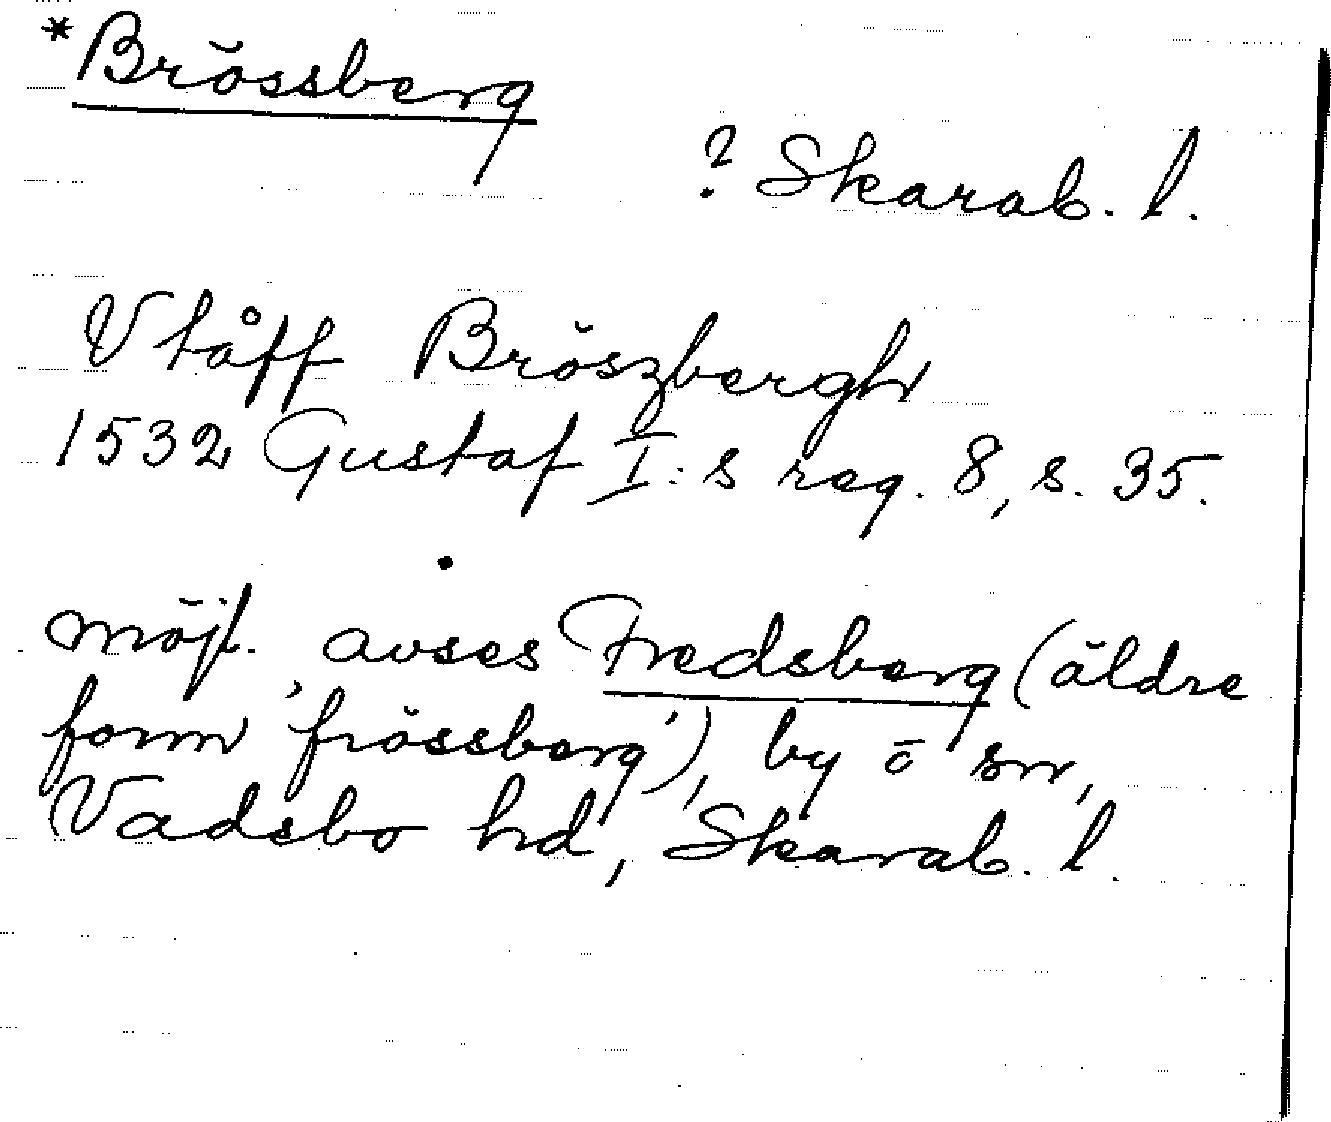 *Brössberg
? Skarab. l.
Vtåff Bröszbergh
1532 Gustaf I:s reg. 8, s. 35.
möjl. avses Fredsberg (äldre
form 'frössberg'), by o sn,
Vadsbo hd, Skarab. l.